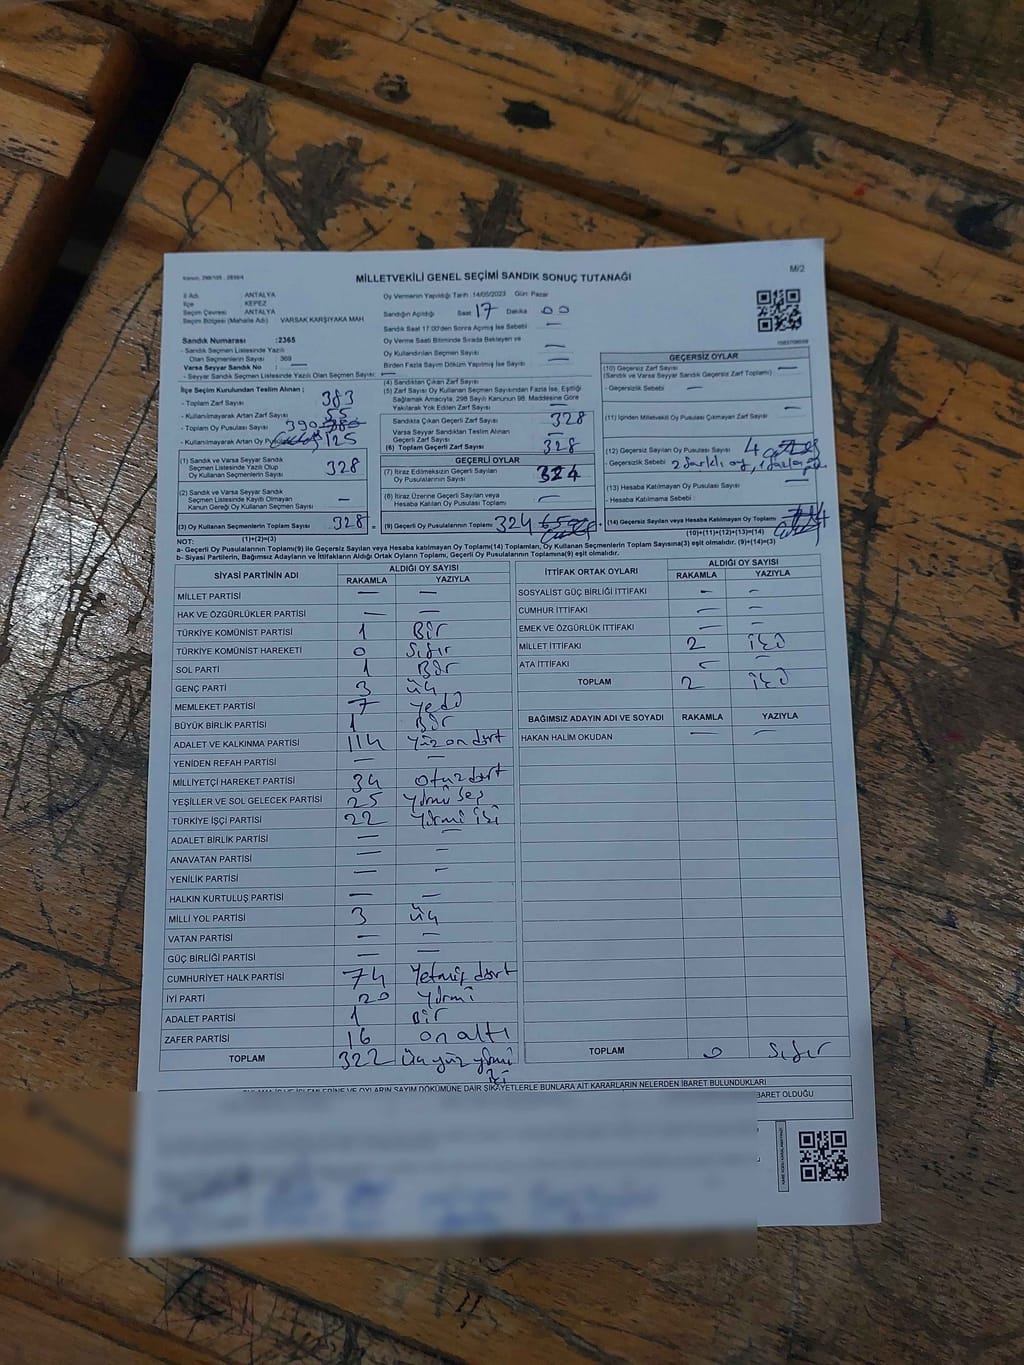 MİLLETVEKİLİ GENEL SEÇİMİ SANDIK SONUÇ TUTANAĞI
M/2
İl Adı : ANTALYA
İlçe : KEPEZ
Seçim Çevresi : ANTALYA
Seçim Bölgesi (Mahalle Adı) : VARSAK KARŞIYAKA MAH
Sandık Numarası : 2365
- Sandık Seçmen Listesinde Yazılı
Olan Seçmenlerin Sayısı : 369
Varsa Seyyar Sandık No : —
- Seyyar Sandık Seçmen Listesinde Yazılı Olan Seçmen Sayısı: —
Oy Vermenin Yapıldığı Tarih :14/05/2023 Gün: Pazar
Sandığın Açıldığı Saat 17 Dakika 00
Sandık Saat 17:00'den Sonra Açılmış İse Sebebi —
Oy Verme Saati Bitiminde Sırada Bekleyen ve
Oy Kullandırılan Seçmen Sayısı —
Birden Fazla Sayım Döküm Yapılmış İse Sayısı —
İlçe Seçim Kurulundan Teslim Alınan ;
- Toplam Zarf Sayısı : 383
- Kullanılmayarak Artan Zarf Sayısı : 55
- Toplam Oy Pusulası Sayısı : 390
- Kullanılmayarak Artan Oy 125
(1) Sandık ve Varsa Seyyar Sandık
Seçmen Listesinde Yazılı Olup
Oy Kullanan Seçmenlerin Sayısı 328
(2) Sandık ve Varsa Seyyar Sandık
Seçmen Listesinde Kayıtlı Olmayan
Kanun Gereği Oy Kullanan Seçmenlerin Sayısı —
(3) Oy Kullanan Seçmenlerin Toplam Sayısı 328
(1)+(2)=(3)
(4) Sandıktan Çıkan Zarf Sayısı
(5) Zarf Sayısı Oy Kullanan Seçmen Sayısından Fazla İse, Eşitliği
Sağlamak Amacıyla, 298 Sayılı Kanunun 98. Maddesine Göre
Yakılarak Yok Edilen Zarf Sayısı —
Sandıkta Çıkan Geçerli Zarf Sayısı 328
Varsa Seyyar Sandıktan Teslim Alınan
Geçerli Zarf Sayısı —
(6) Toplam Geçerli Zarf Sayısı 328
GEÇERLİ OYLAR
(7) İtiraz Edilmeksizin Geçerli Sayılan
Oy Pusulalarının Sayısı 324
(8) İtiraz Üzerine Geçerli Sayılan veya
Hesaba Katılan Oy Pusulası Toplamı —
(9) Geçerli Oy Pusulalarının Toplamı 324
GEÇERSİZ OYLAR
(10) Geçersiz Zarf Sayısı —
(Sandık ve Varsa Seyyar Sandık Geçersiz Zarf Toplamı)
- Geçersizlik Sebebi : —
(11) İçinden Milletvekili Oy Pusulası Çıkmayan Zarf Sayısı —
(12) Geçersiz Sayılan Oy Pusulası Sayısı 4
- Geçersizlik Sebebi 2 farklı oy, 1 fazla
(13) Hesaba Katılmayan Oy Pusulası Sayısı —
- Hesaba Katılmama Sebebi :
(14) Geçersiz Sayılan veya Hesaba Katılmayan Oy Toplamı
(10)+(11)+(12)+(13)=(14)
NOT:
a- Geçerli Oy Pusulaları Toplamı(9) ile Geçersiz Sayılan veya Hesaba katılmayan Oy Toplamı(14) Toplamları, Oy Kullanan Seçmenlerin Toplam Sayısına(3) eşit olmalıdır. (9)+(14)=(3)
b- Siyasi Partilerin, Bağımsız Adayların ve İttifakların Aldığı Ortak Oyların Toplamı, Geçerli Oy Pusulalarının Toplamına(9) eşit olmalıdır.
SİYASİ PARTİNİN ADI ALDIĞI OY SAYISI
RAKAMLA YAZIYLA
MİLLET PARTİSİ — —
HAK VE ÖZGÜRLÜKLER PARTİSİ — —
TÜRKİYE KOMÜNİST PARTİSİ 1 Bir
TÜRKİYE KOMÜNİST HAREKETİ 0 Sıfır
SOL PARTİ 1 Bir
GENÇ PARTİ 3 üç
MEMLEKET PARTİSİ 7 yedi
BÜYÜK BİRLİK PARTİSİ 1 Bir
ADALET VE KALKINMA PARTİSİ 114 Yüz on dört
YENİDEN REFAH PARTİSİ — —
MİLLİYETÇİ HAREKET PARTİSİ 34 Otuz dört
YEŞİLLER VE SOL GELECEK PARTİSİ 25 Yirmi beş
TÜRKİYE İŞÇİ PARTİSİ 22 Yirmi iki
ADALET BİRLİK PARTİSİ — —
ANAVATAN PARTİSİ — —
YENİLİK PARTİSİ — —
HALKIN KURTULUŞ PARTİSİ — —
MİLLİ YOL PARTİSİ 3 Üç
VATAN PARTİSİ — —
GÜÇ BİRLİĞİ PARTİSİ —
CUMHURİYET HALK PARTİSİ 74 Yetmiş dört
İYİ PARTİ 20 Yirmi
ADALET PARTİSİ 1 Bir
ZAFER PARTİSİ 16 on altı
TOPLAM 322 Üç yüz yirmi
iki
İTTİFAK ORTAK OYLARI ALDIĞI OY SAYISI
RAKAMLA YAZIYLA
SOSYALİST GÜÇ BİRLİĞİ İTTİFAKI — —
CUMHUR İTTİFAKI — —
EMEK VE ÖZGÜRLÜK İTTİFAKI — —
MİLLET İTTİFAKI 2 iki
ATA İTTİFAKI — —
TOPLAM 2 iki
BAĞIMSIZ ADAYIN ADI VE SOYADI RAKAMLA YAZIYLA
HAKAN HALİM OKUDAN — —
TOPLAM 0 Sıfır
İŞLEMLERİNE VE OYLARIN SAYIM DÖKÜMÜNE DAİR ŞİKAYETLERLE BUNLARA AİT KARARLARIN NELERDEN İBARET BULUNDUKLARI
İBARET OLDUĞU